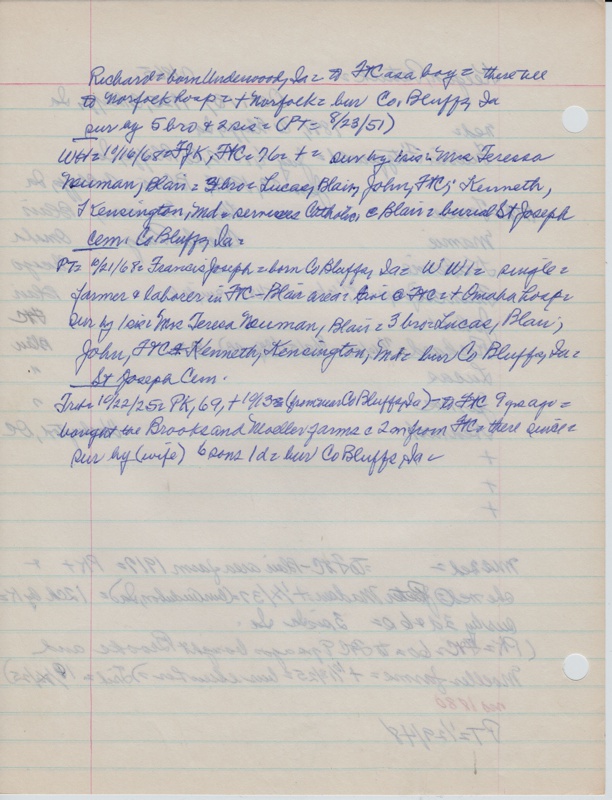 Richard = born Underwood, Ia = to FtC as a boy = there till
to Norfolk hosp = + Norfolk = bur Co. Bluffs, Ia
sur by 5 bro & 2 sis = (PT = 8/23/51)
WH = 10/16/68 = FJK, FtC = 76 = + = sur by 1 sis = Mrs Teressa
Neuman, Blair = 3 bro = Lucas, Blair, John, FtC; Kenneth,
Kensington, Md = services Catholic, c Blair = buried St Joseph
Cem. Co Bluffs, Ia =
PT = 10/21/68 = Francis Joseph = born Co Bluffs, Ia = WW1 = single =
farmer & laborer in FtC - Blair area = c FtC = + Omaha hosp =
sur by 1 sis = Mrs Teresa Neuman, Blair = 3 bro = Lucas, Blair,
John, FtC & Kenneth, Kensington, Md = bur Co Bluffs, Ia =
St Joseph Cem.
Trib = 10/22/25 = PK, 69, + 10/13 = (from near Co Bluffs, Ia) - to FtC 9 yrs ago =
bought the Brooks and Moeller farms = 2 m from FtC = there since =
sur by (wife) 6 sons 1 d = bur Co Bluffs, Ia =